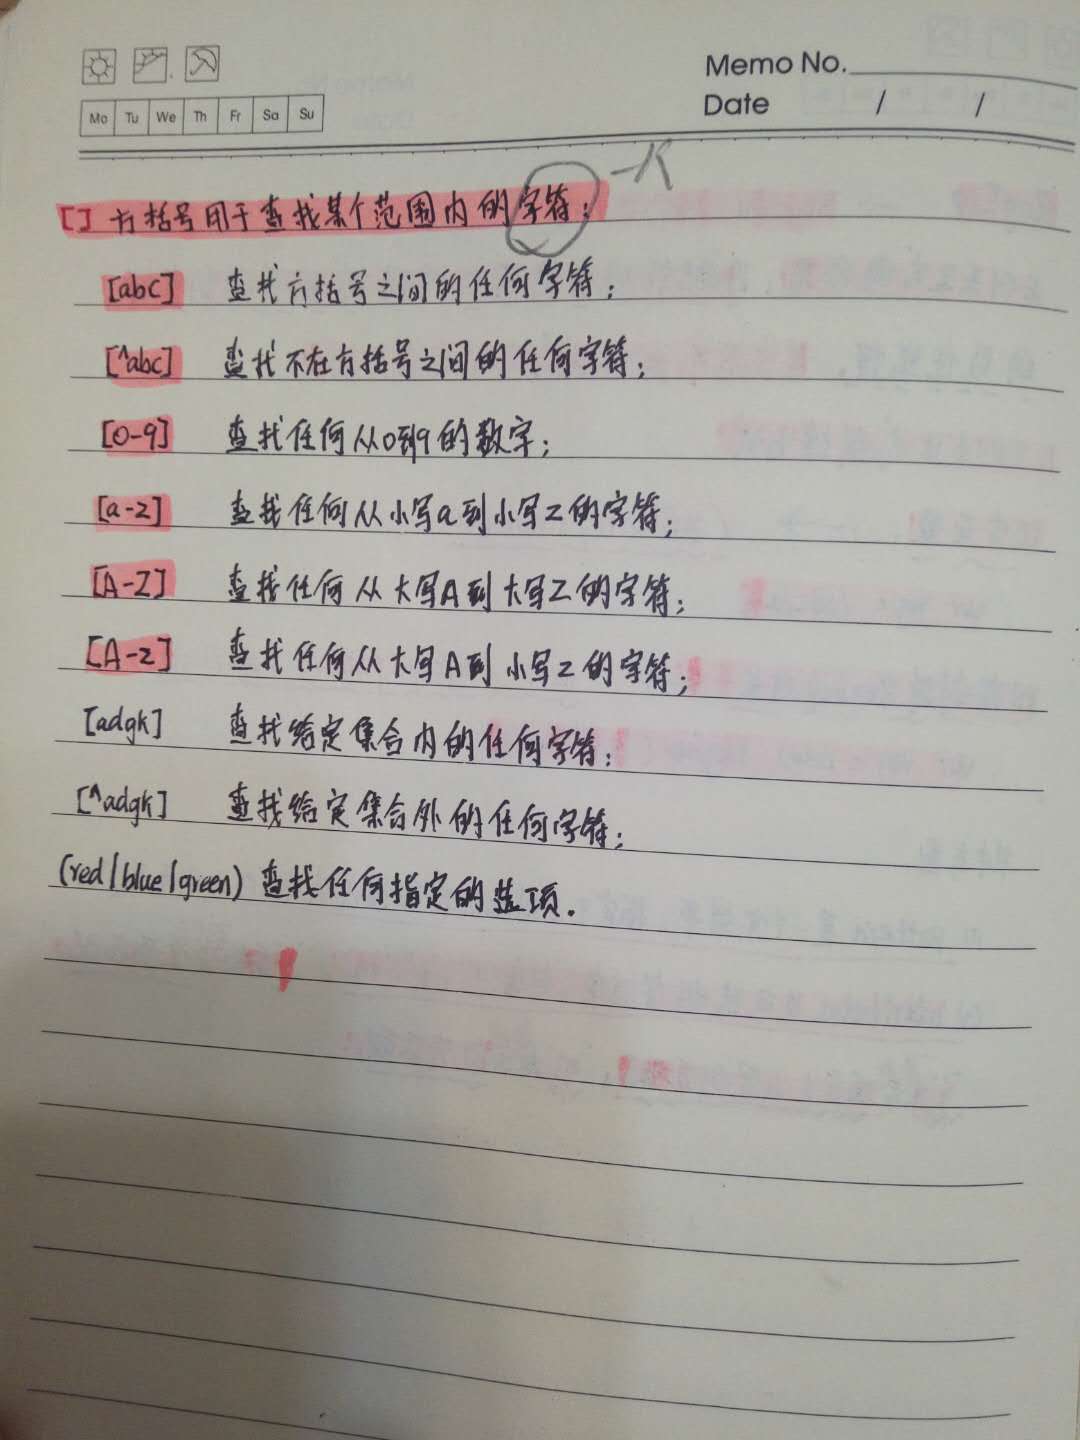 Memo No.
Mo Tu We Th Fr Sa Su
Date / /
[] 方括号用于查找某个范围内的字符:
[abc] 查找方括号之间的任何字符;
[^abc] 查找不在方括号之间的任何字符;
[0-9] 查找任何从0到9的数字;
[a-z] 查找任何从小写a到小写z的字符;
[A-Z] 查找任何从大写A到大写Z的字符;
[A-z] 查找任何从大写A到小写z的字符;
[adgk] 查找给定集合内的任何字符;
[^adgk] 查找给定集合外的任何字符;
(red|blue|green) 查找任何指定的选项.